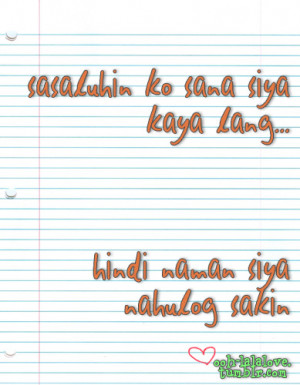 sasaluhin ko sana siya
kaya lang...
hindi naman siya
nahulog sakin
ooh-lalalove.
tumblr.com